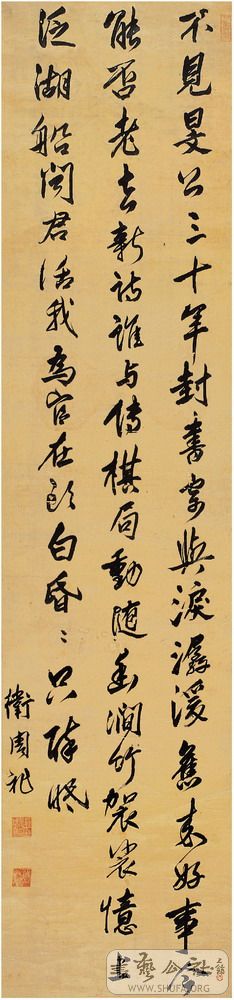 不見旻公三十年封書寄與淚潺湲舊来好事今
能否老去新詩誰与傳棋局動随幽澗竹袈裟憶上
泛湖船聞君話我為官在頭白昏〻只醉眠
衛周祚
書藝公社
WWW.SHUFA.ORG